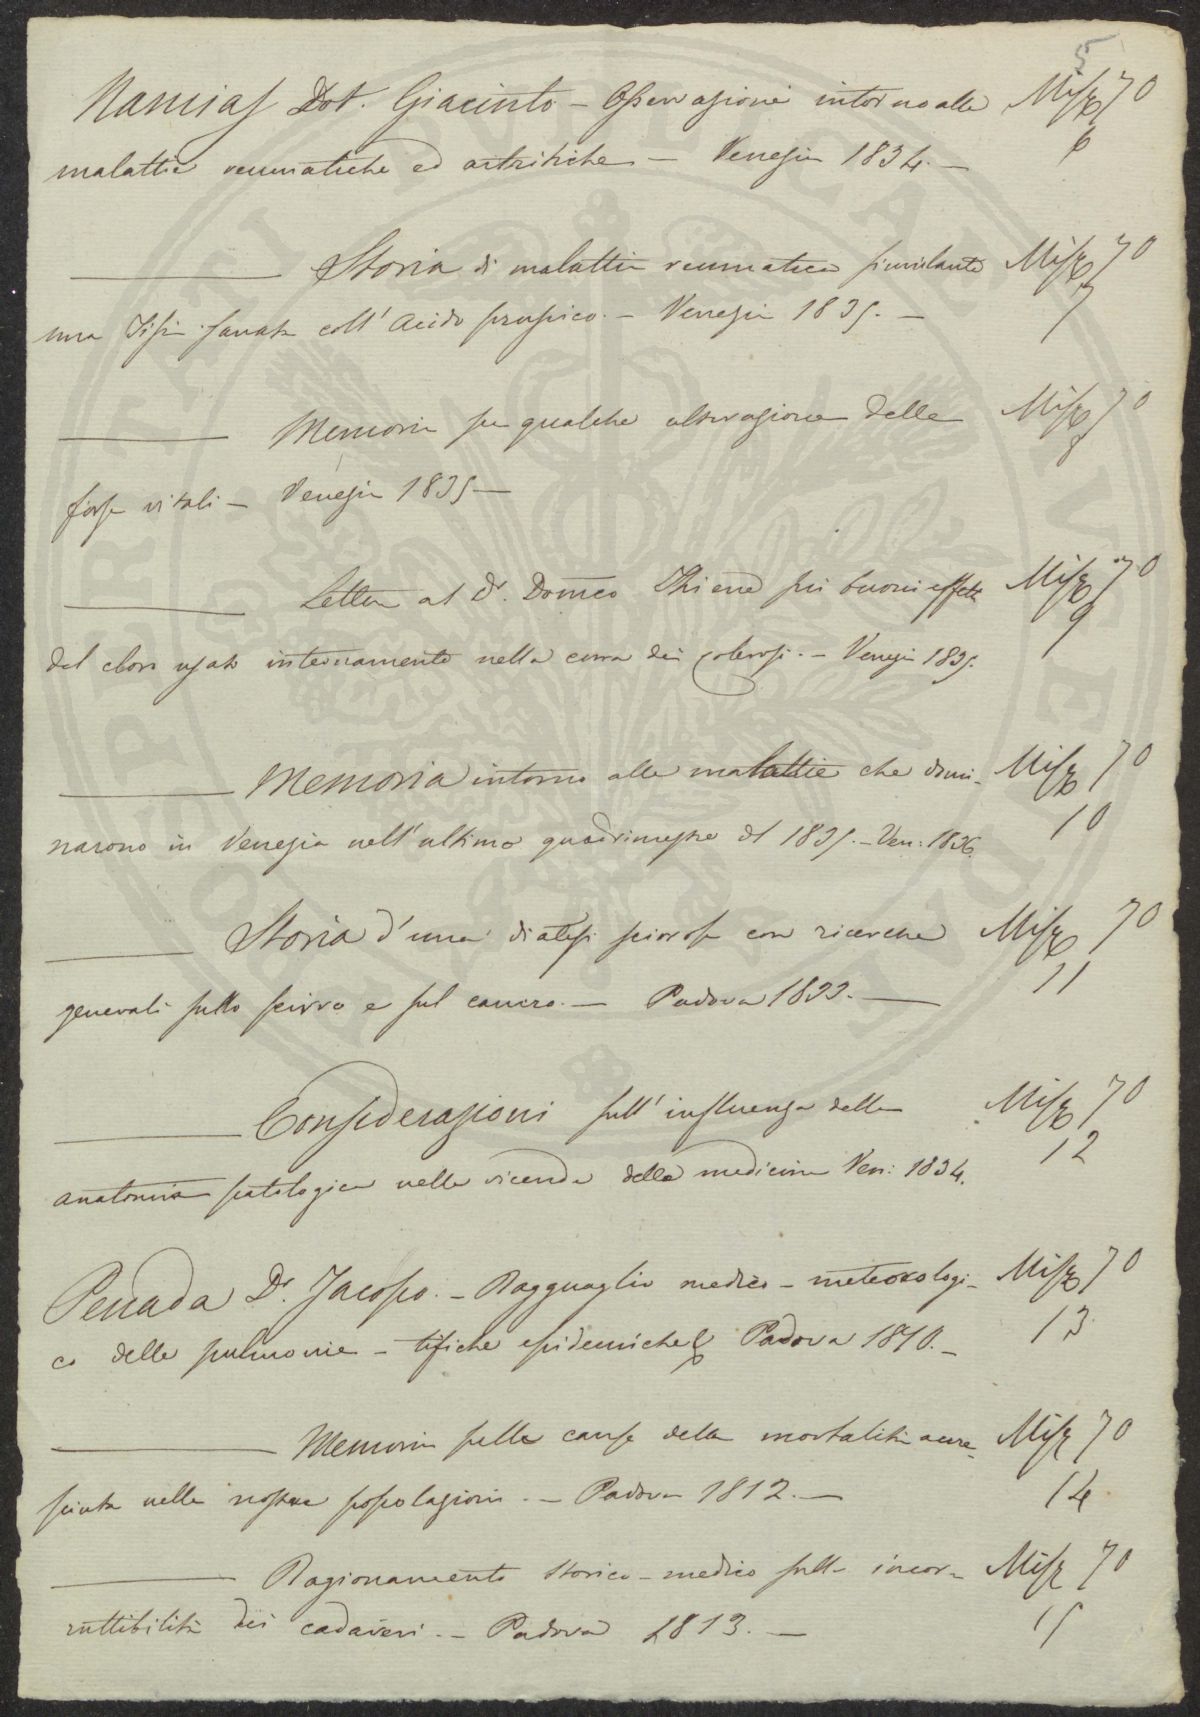 5
Namias Dot. Giacinto – Osservazioni intorno alle Misc 70
malattie reumatiche ed artritiche – Venezia 1834. – 6
Storia di malattia reumatica simulante Misc 70
una Tisi sanata coll' Acido prussico. – Venezia 1835. – 7
Memoria su qualche alterazione delle Misc 70
forze vitali – Venezia 1835 – 8
Lettera al Dr. Domco Thiene sui buoni effetti Misc 70
del cloro usato internamente nella cura dei colerosi. – Venezia 1835. 9
Memoria intorno alle malattie che domi- Misc 70
narono in Venezia nell' ultimo quadrimestre del 1835. – Ven: 1836. 10
Storia d'una diatesi scirrosa con ricerche Misc 70
generali sullo scirro e sul cancro. – Padova 1833. – 11
Considerazioni sull' influenza della Misc 70
anatomia patologica nelle vicende della medicina Ven: 1834. 12
Penada Dr. Jacopo. – Ragguaglio medico – meteorologi- Misc 70
co delle pulmonie – tifiche epidemiche Padova 1810. – 13
Memoria sulle cause della mortalità accre- Misc 70
sciuta nelle nostre popolazioni. – Padova 1812. – 14
Ragionamento storico – medico sulla incor- Misc 70
ruttibilità dei cadaveri. – Padova 1813. – 15